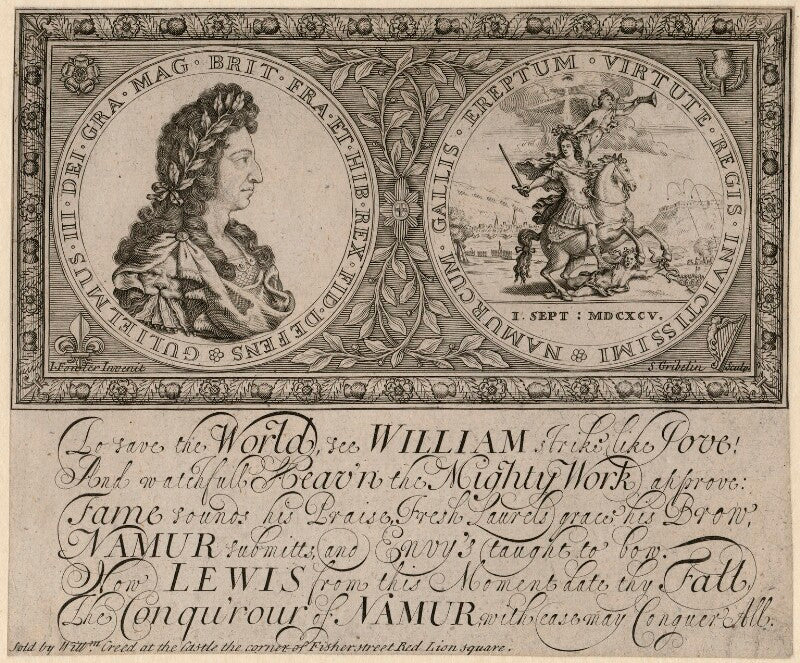 GULIELMUS · III · DEI · GRA · MAG · BRIT · FRA · ET · HIB · REX · FID · DEFENS
NAMURCUM · GALLIS · EREPTUM · VIRTUTE · REGIS · INVICTISSIMI
I. SEPT : MDCXCV.
I. Fowler Invenit
S. Gribelin Sculp
To save the World, see WILLIAM strike like Jove!
And watchfull Heav'n the Mighty Work approve:
Fame sounds his Praise, Fresh Laurels grace his Brow,
NAMUR submitts, and Envy's taught to bow.
Now LEWIS from this Moment date thy Fall,
The Conqu'rour of NAMUR, with ease may Conquer All.
Sold by Will.m Creed at the Castle the corner of Fisher street Red Lion square.